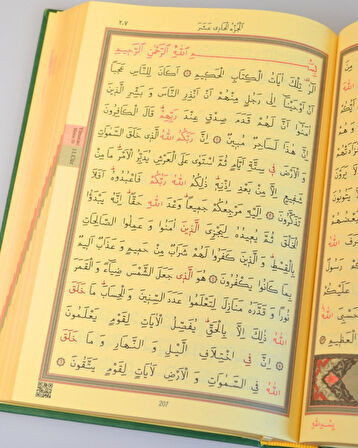 ٢٠٧ اَلْجُزْءُ الْحَادِي عَشَرَ
بِسْمِ اللّٰهِ الرَّحْمٰنِ الرَّحِيمِ
الٓرٰ تِلْكَ اٰيَاتُ الْكِتَابِ الْحَكِيمِ ۝ اَكَانَ لِلنَّاسِ عَجَبًا
اَنْ اَوْحَيْنَا اِلٰى رَجُلٍ مِنْهُمْ اَنْ اَنْذِرِ النَّاسَ وَبَشِّرِ الَّذِينَ
اٰمَنُوا اَنَّ لَهُمْ قَدَمَ صِدْقٍ عِنْدَ رَبِّهِمْ قَالَ الْكَافِرُونَ
اِنَّ هٰذَا لَسَاحِرٌ مُبِينٌ ۝ اِنَّ رَبَّكُمُ اللّٰهُ الَّذِي خَلَقَ السَّمٰوَاتِ
وَالْاَرْضَ فِي سِتَّةِ اَيَّامٍ ثُمَّ اسْتَوٰى عَلَى الْعَرْشِ يُدَبِّرُ الْاَمْرَ مَا مِنْ
شَفِيعٍ اِلَّا مِنْ بَعْدِ اِذْنِهِ ذٰلِكُمُ اللّٰهُ رَبُّكُمْ فَاعْبُدُوهُ اَفَلَا
تَذَكَّرُونَ ۝ اِلَيْهِ مَرْجِعُكُمْ جَمِيعًا وَعْدَ اللّٰهِ حَقًّا اِنَّهُ يَبْدَؤُا
الْخَلْقَ ثُمَّ يُعِيدُهُ لِيَجْزِيَ الَّذِينَ اٰمَنُوا وَعَمِلُوا الصَّالِحَاتِ
بِالْقِسْطِ وَالَّذِينَ كَفَرُوا لَهُمْ شَرَابٌ مِنْ حَمِيمٍ وَعَذَابٌ اَلِيمٌ
بِمَا كَانُوا يَكْفُرُونَ ۝ هُوَ الَّذِي جَعَلَ الشَّمْسَ ضِيَاءً وَالْقَمَرَ
نُورًا وَقَدَّرَهُ مَنَازِلَ لِتَعْلَمُوا عَدَدَ السِّنِينَ وَالْحِسَابَ مَا خَلَقَ
اللّٰهُ ذٰلِكَ اِلَّا بِالْحَقِّ يُفَصِّلُ الْاٰيَاتِ لِقَوْمٍ يَعْلَمُونَ
۝ اِنَّ فِي اخْتِلَافِ الَّيْلِ وَالنَّهَارِ وَمَا خَلَقَ
اللّٰهُ فِي السَّمٰوَاتِ وَالْاَرْضِ لَاٰيَاتٍ لِقَوْمٍ يَتَّقُونَ ۝
207